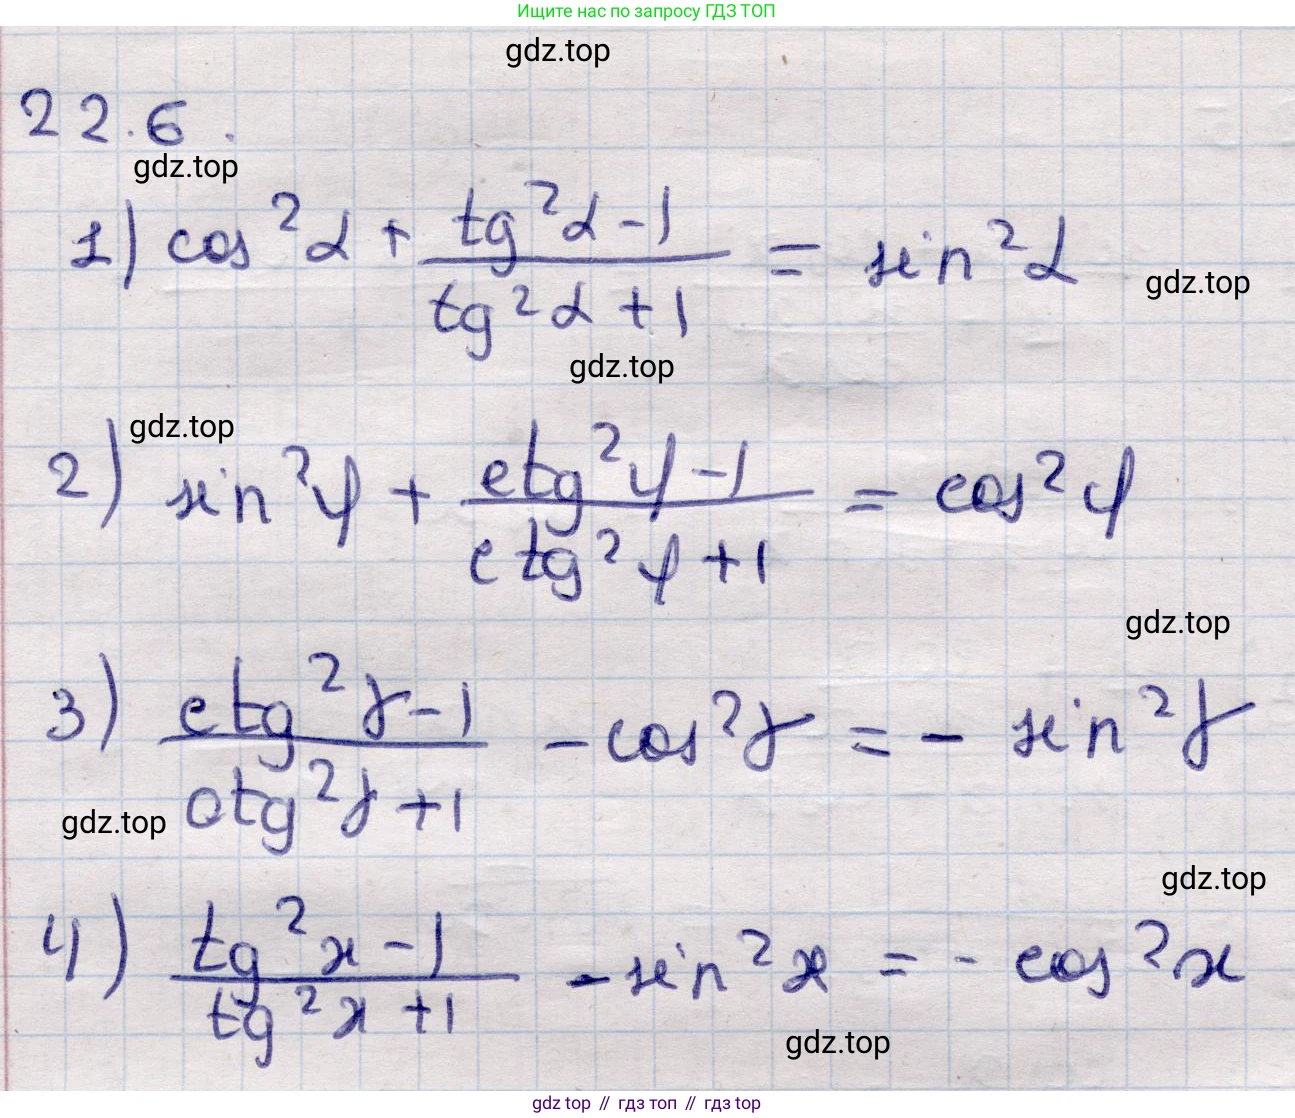 Ищите нас по запросу ГДЗ ТОП
gdz.top
22.6.
gdz.top
1) cos²α + (tg²α - 1)/(tg²α + 1) = sin²α
gdz.top
gdz.top
gdz.top
2) sin²φ + (ctg²φ - 1)/(ctg²φ + 1) = cos²φ
gdz.top
3) (ctg²γ - 1)/(ctg²γ + 1) - cos²γ = - sin²γ
gdz.top
gdz.top
4) (tg²x - 1)/(tg²x + 1) - sin²x = - cos²x
gdz.top
gdz top // гдз топ // gdz top